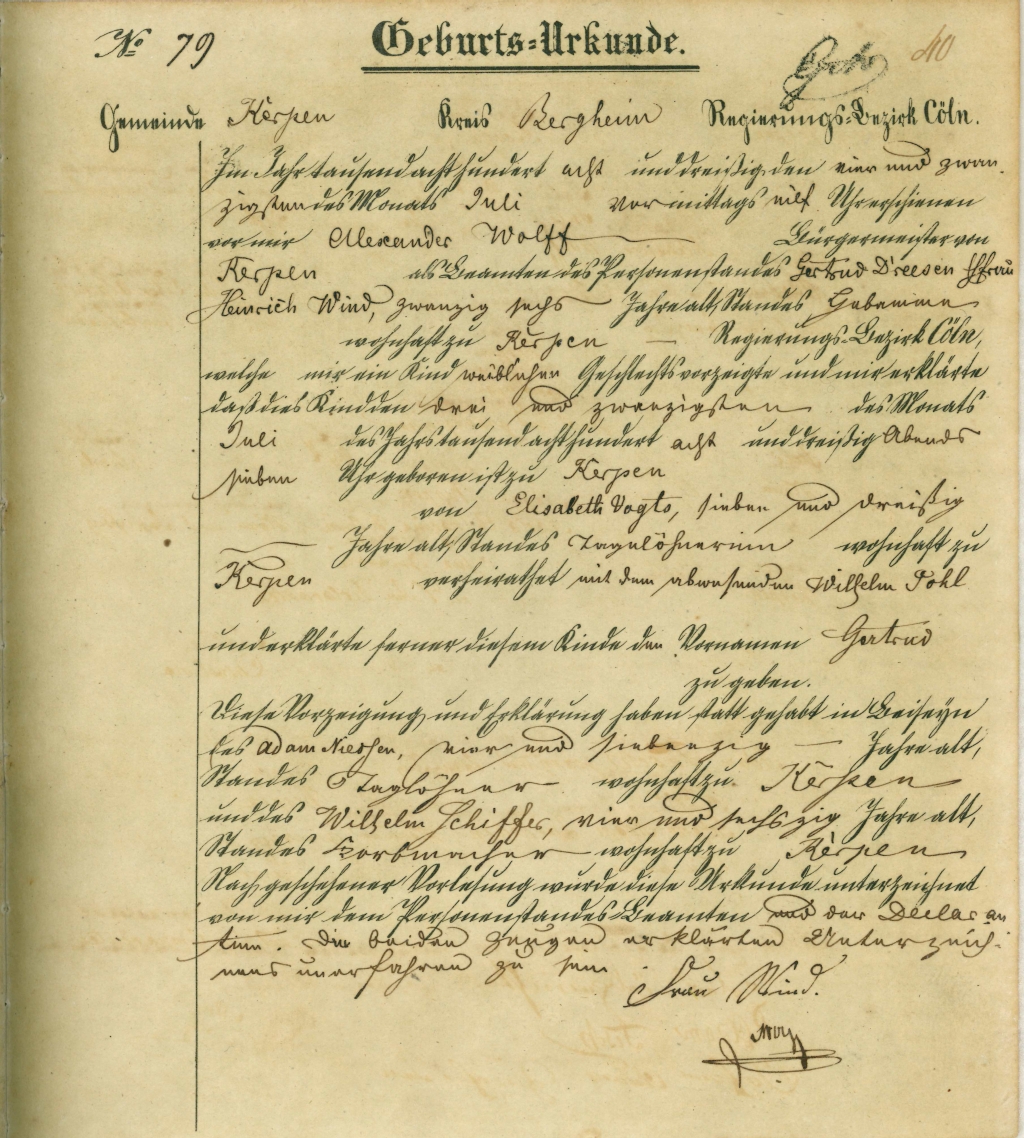 No 79
Geburts-Urkunde.
40
Gemeinde Kerpen Kreis Bergheim Regierungs-Bezirk Cöln.
Im Jahr tausend acht hundert acht und dreißig, den vier und zwan-
zigsten des Monats Juli Vormittags eilf Uhr erschienen
vor mir Alexander Wolff Bürgermeister von
Kerpen als Beamten des Personenstandes Gertrud Dreesen Ehfrau
Heinrich Wind, zwanzig sechs Jahre alt, Standes Hebamme
wohnhaft zu Kerpen — Regierungs-Bezirk Cöln,
welche mir ein Kind weiblichen Geschlechts vorzeigte und mir erklärte
daß dies Kind den drei und zwanzigsten des Monats
Juli des Jahrs tausend acht hundert acht und dreißig Abends
sieben Uhr geboren ist zu Kerpen
von Elisabeth Vogts, sieben und dreißig
Jahre alt, Standes Tagelöhnerinn wohnhaft zu
Kerpen verheirathet mit dem abwesenden Wilhelm Pohl
und erklärte ferner diesem Kinde den Vornamen Gertrud
zu geben.
Diese Vorzeigung und Erklärung haben statt gehabt in Beiseyn
des Adam Niessen, vier und siebenzig — Jahre alt,
Standes Taglöhner wohnhaft zu Kerpen
und des Wilhelm Schiffer, vier und sechszig Jahre alt,
Standes Korbmacher wohnhaft zu Kerpen
Nach geschehener Vorlesung wurde diese Urkunde unterzeichnet
von mir dem Personenstands-Beamten und der Declaran
tinn. Die beiden Zeugen erklärten Unterzeich-
nens unerfahren zu sein.
Frau Wind.